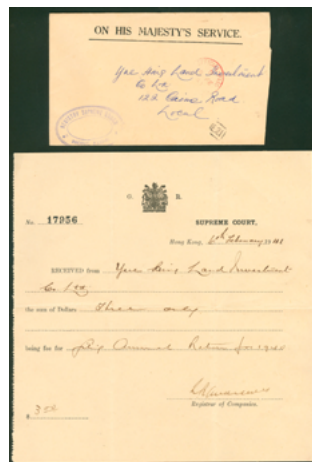 ON HIS MAJESTY'S SERVICE.
Land Investment
Co Ltd
122 Caine Road
Local
G. R.
No. 17956
SUPREME COURT,
Hong Kong, 6th February 1941
RECEIVED from Land Investment
Co. Ltd.
the sum of Dollars Three only
being fee for Annual Return for 1940
Registrar of Companies.
$ 3